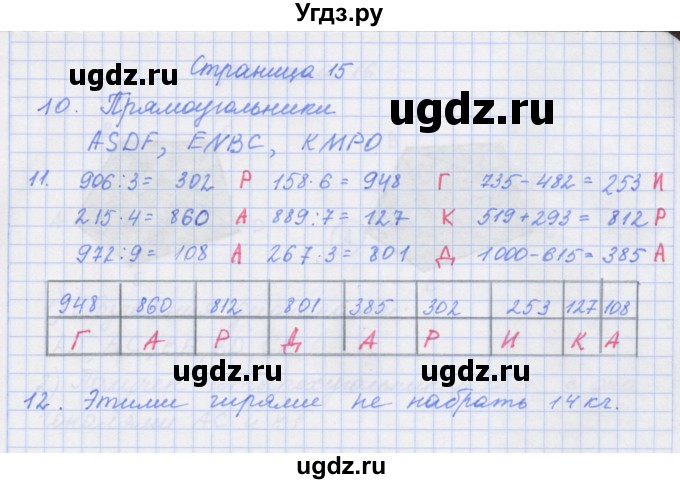 Угдз.ру
Страница 15
ugdz.ru
ugdz.ru
10. Прямоугольники
ASDF, ENBC, KMPO
11. 906:3= 302 Р 158·6= 948 Г 735-482=253 И
215·4=860 А 889:7=127 К 519+293=812 Р
972:9=108 А 267·3=801 Д 1000-615=385 А
ugdz.ru
ugdz.ru
948 860 812 801 385 302 253 127 108
Г А Р Д А Р И К А
ugdz.ru
ugdz.ru
12. Этими гирями не набрать 14кг.
ugdz.ru